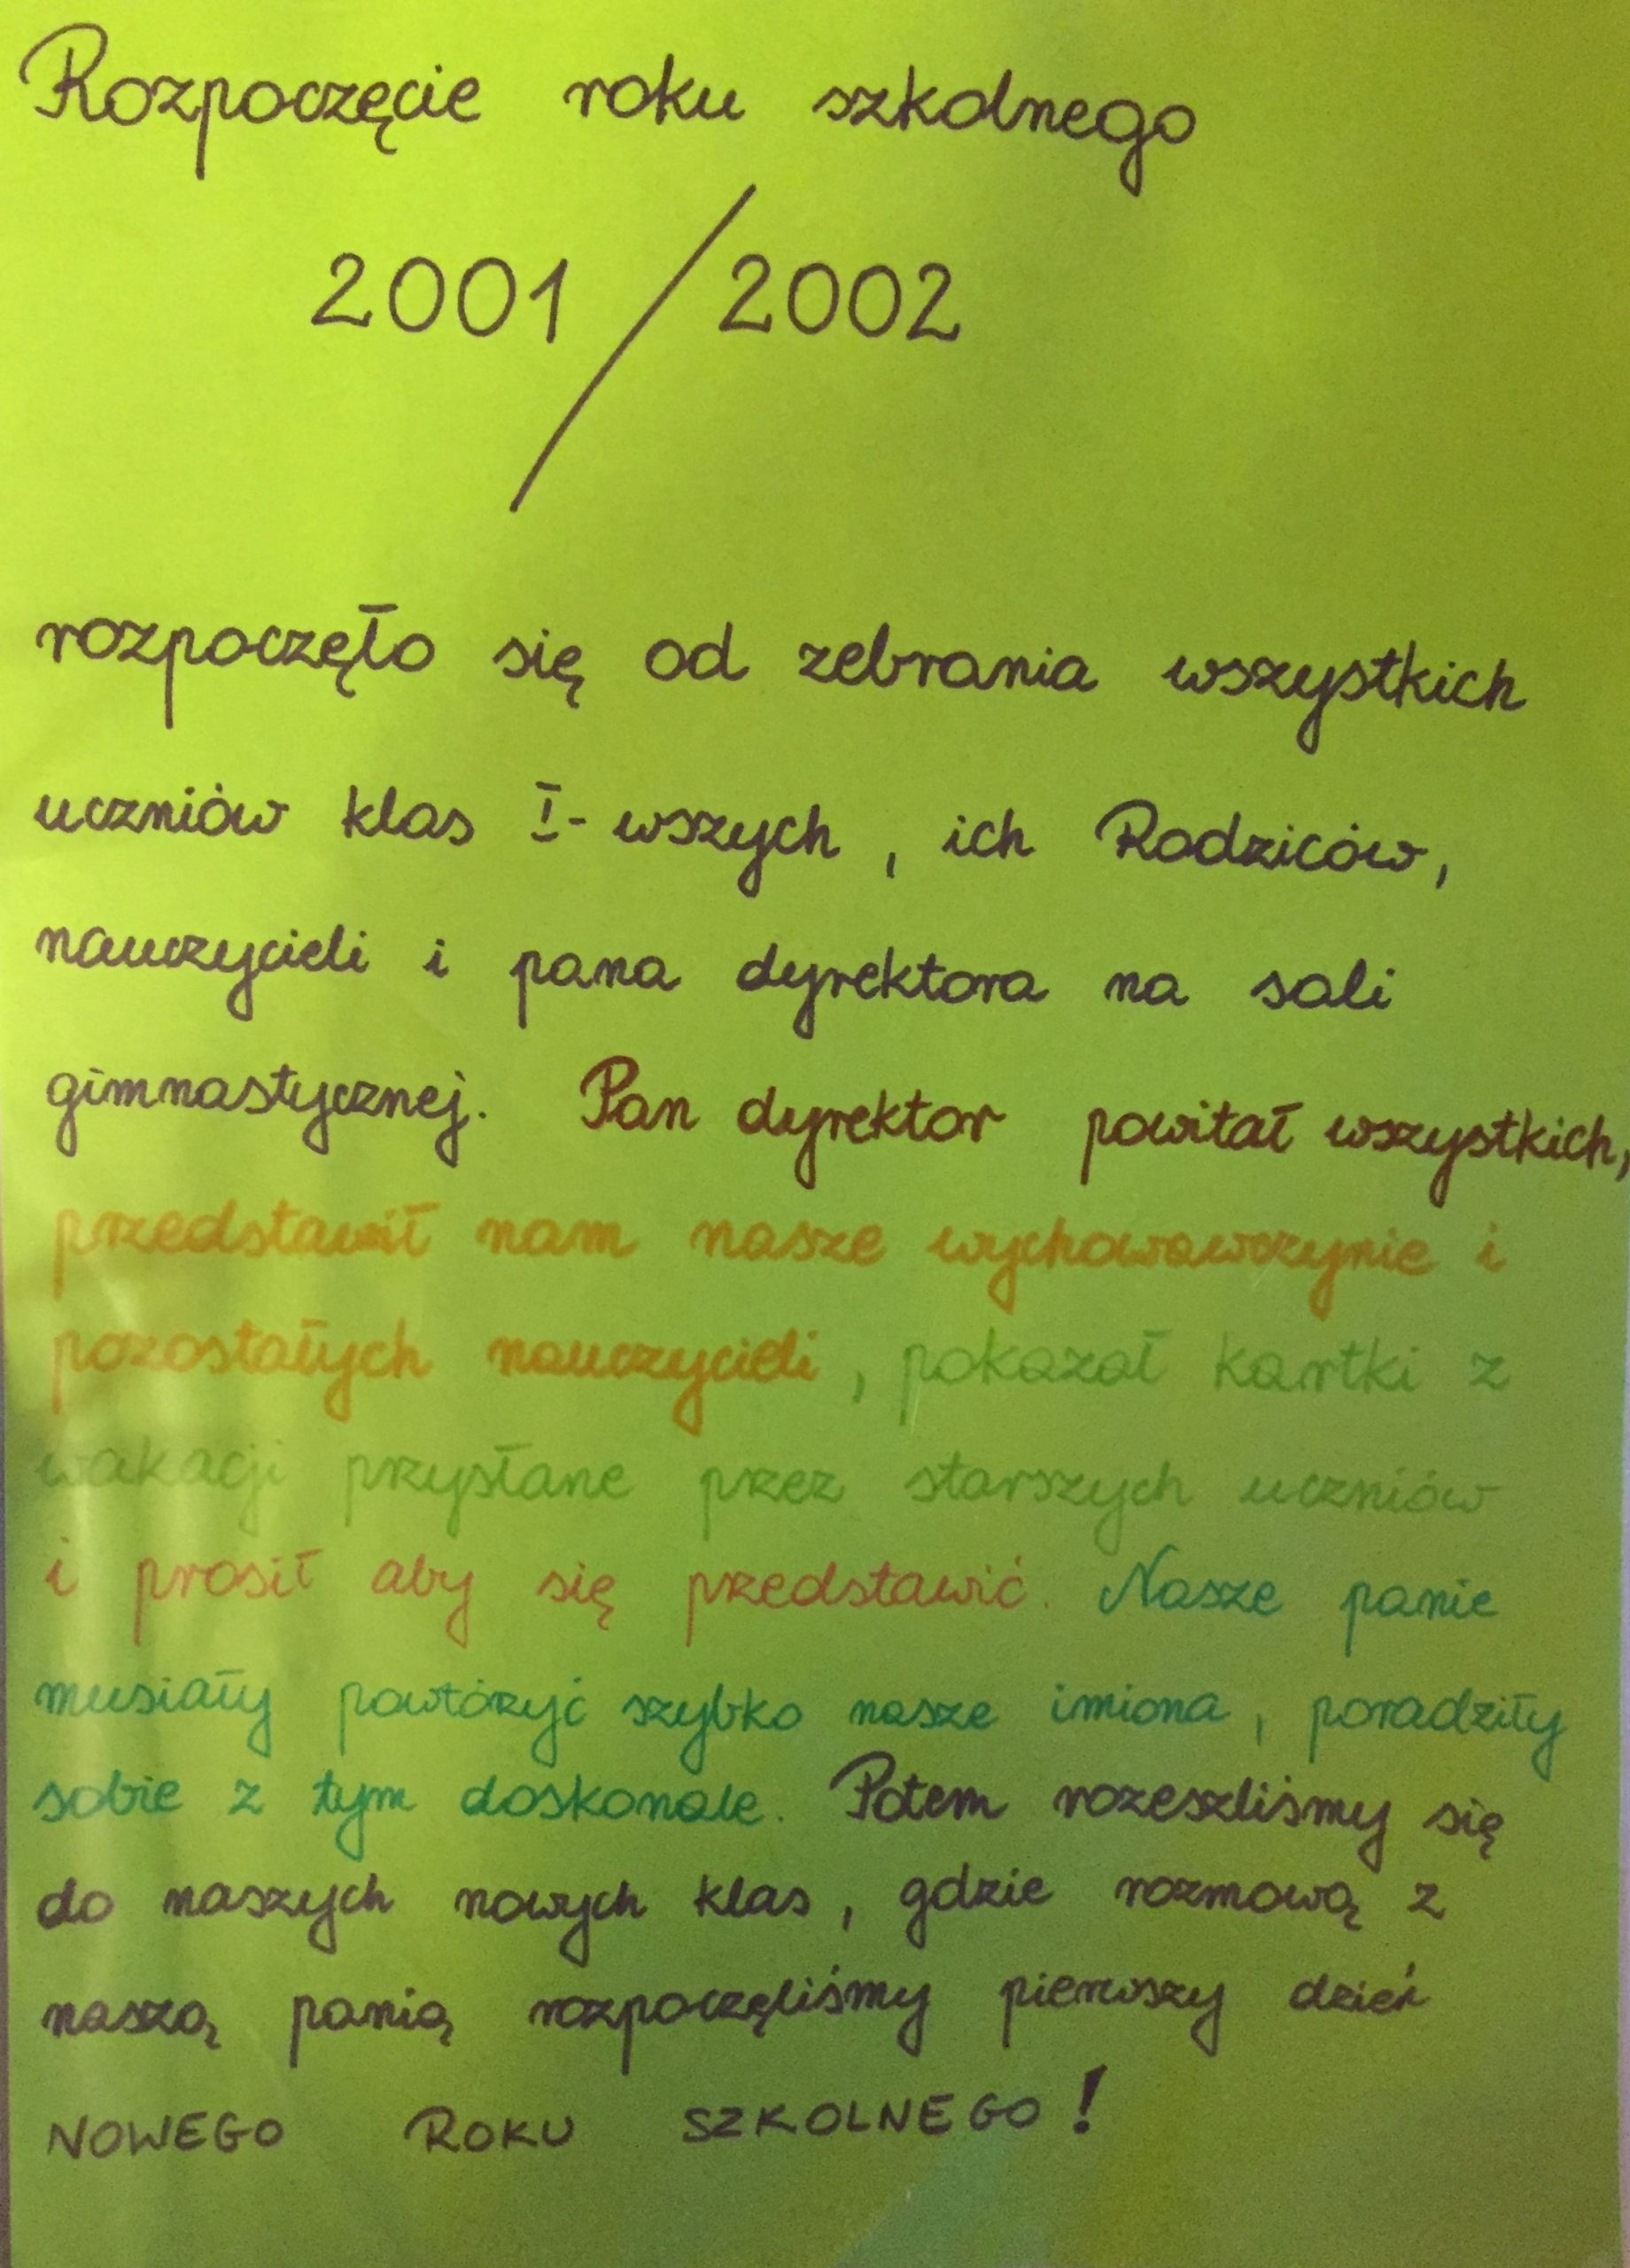 Rozpoczęcie roku szkolnego
2001/2002
rozpoczęło się od zebrania wszystkich
uczniów klas I-wszych, ich Rodziców,
nauczycieli i pana dyrektora na sali
gimnastycznej. Pan dyrektor powitał wszystkich,
przedstawił nam nasze wychowawczynie i
pozostałych nauczycieli, pokazał kartki z
wakacji przysłane przez starszych uczniów
i prosił aby się przedstawić. Nasze panie
musiały powtórzyć szybko nasze imiona, poradziły
sobie z tym doskonale. Potem rozeszliśmy się
do naszych nowych klas, gdzie rozmową z
naszą panią rozpoczęliśmy pierwszy dzień
NOWEGO ROKU SZKOLNEGO!